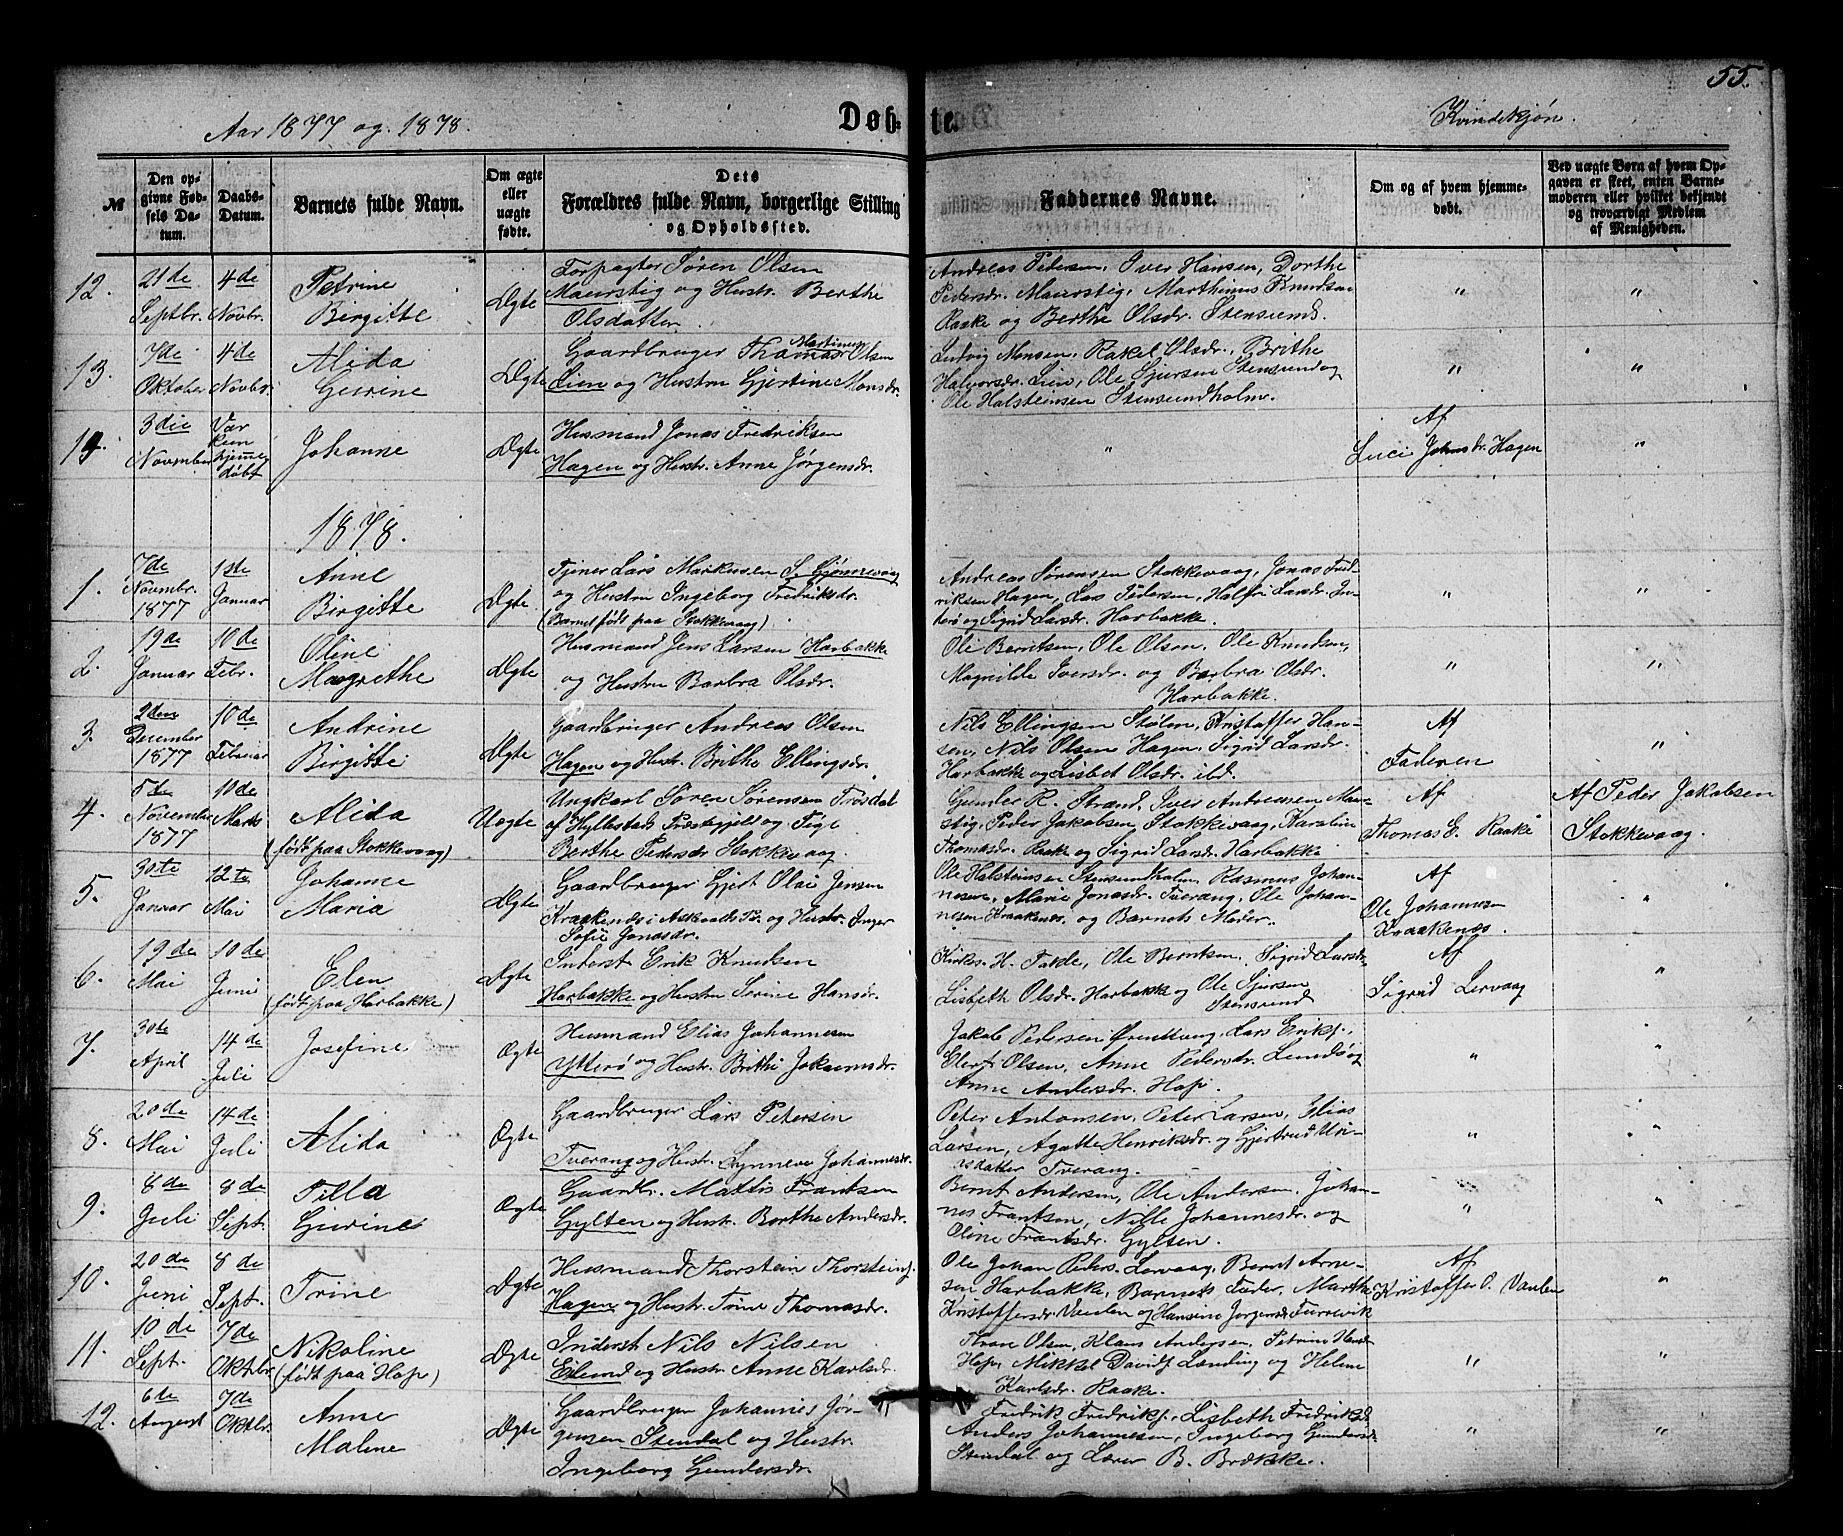 55.
Aar 1877 og 1878.
Døbte.
Kvindekjøn.
№
Den op-
givne Fød-
sels Da-
tum.
Daabs-
Datum.
Barnets fulde Navn.
Om ægte
eller
uægte
fødte.
Dets
Forældres fulde Navn, borgerlige Stilling
og Opholdssted.
Faddernes Navne.
Om og af hvem hjemme-
døbt.
Ved uægte Børn af hvem Op-
gaven er skeet, enten Barne-
moderen eller hvilket bekjendt
og troværdigt Medlem
af Menigheden.
12.
21de
Septbr.
4de
Novbr.
Petrine
Birgitte
Ægte
Forpagter Søren Olsen
Maurstig og Hustr. Berthe
Olsdatter.
Andreas Pedersen, Iver Hansen, Dorthe
Pedersdr. Maurstig, Marthinus Knudsen
Raake og Berthe Olsdr. Stensund.
"
"
13.
7de
Oktober
4de
Novbr.
Alida
Gurine
Ægte
Gaardbruger Thomas Martinus Olsen
Lien og Hustru Gjertine Monsdr.
Ludvig Monsen, Rakel Olsdr., Brithe
Halvorsdr. Lien, Ole Sjursen Stensund og
Ole Halsteinsen Stensundholm.
"
"
14.
3die
Novmber
Var
kun
hjemme
døbt
Johanne
Ægte
Husmand Jonas Fredriksen
Hagen og Hustr. Anne Jørgensdr.
"
Af
Luci Johnsdr. Hagen
"
1878.
1.
7de
Novmbr.
1877
1ste
Januar
Anne
Birgitte
Ægte
Tjener Lars Markusen S. Gjønnevaag
og Hustru Ingeborg Fredriksdr.
(Barnet født paa Stokkevaag)
Andreas Sørensen Stokkevaag, Jonas Fred-
riksen Hagen, Lars Pedersen, Larsdr.
og Sigrid Larsdr. Harbakke.
"
"
2.
19de
Januar
10de
Febr.
Oline
Magrethe
Ægte
Husmand Jens Larsen Harbakke
og Hustru Barbra Olsdr.
Ole Berntsen, Ole Olsen, Ole Knudsen,
Magnilde Iversdr. og Barbra Olsdr.
Harbakke.
"
"
3.
2den
December
1877
10de
Februar
Andrine
Birgitte
Ægte
Gaardbruger Andreas Olsen
Hagen og Hustr. Brithe Ellingsdr.
Nils Ellingsen Stølen, Kristoffer Han-
sen, Nils Olsen Hagen, Sigrid Larsdr.
Harbakke og Lisbet Olsdr. ibd.
Af
Faderen
"
4.
5te
November
1877
10de
Marts
Alida
(født paa Stokkevaag)
Uægte
Ungkarl Søren Sørensen Trosdal
af Hyllestads Præstegjeld og Pige
Berthe Pedersdr Stokkevaag.
Gunder R. Strand, Iver Andreassen Mau-
stig, Peder Jakobsen Stokkevaag, Karoline
Thomasdr. Raake og Sigrid Larsdr. Harbakke
Af
Thomas E. Raake
Af Peder Jakobsen
Stokkevaag
5.
30te
Januar
12te
Mai
Johanne
Maria
Ægte
Gaardbruger Gjert Olai Jensen
Kraakenæs i Askvolds P. og Hustr. Inger
Sofie Jonasdr.
Ole Halsteinsen Stensundholm, Rasmus Johan-
nesen, Marie Jonasdr. Tverang, Ole Johan-
nesen Kraakenæs, og Barnets Moder.
Af
Ole Johannes-
Kraakenæs.
"
6.
19de
Mai
10de
Juni
Elen
(født paa Harbakke)
Ægte
Inderst Erik Knudsen
Harbakke og Hustru Serine Hansdr.
Kirkes. H. Takle, Ole Berntsen, Sigrid Larsdr
Lisbeth Olsdr. Harbakke og Ole Sjursen
Stensund
Af
Sigrid Lervaag
"
7.
30te
April
14de
Juli
Josefine
Ægte
Husmand Elias Johannesen
Ytterø og Hustr. Brithe Joakimsdr.
Jakob Pedersen, Lars Eriks.,
Elert Olsen, Anne Pedersdr. Lundø og
Anne Andersdr. Hop.
"
"
8.
20de
Mai
14de
Juli
Alida
Ægte
Gaardbruger Lars Petersen
Tverang og Hustr. Synneve Johannesdr.
Peter Antonsen, Peter Larsen, Elias
Larsen, Agathe Henriksdr. og Gjertrud Mon-
sdatter Tverang.
"
"
9.
8de
Juli
8de
Sept.
Pilla
Gurine
Ægte
Gaardbr. Mattis Frantsen
Gylten og Hustr. Berthe Andersdr.
Bernt Andersen, Ole Andersen, Johan-
nes Frantsen, Nille Johannesdr. og
Oline Frantsdr. Gylten.
"
"
10.
20de
Juni
8de
Sept.
Trine
Ægte
Husmand Thorstein Thorsteins.
Hagen og Hustr. Trine Thomasdr.
Ole Johan Peders. Lervaag, Bernt Arne-
sen Harbakke, Barnets Fader, Marthe
Kristoffersdr. Vaulen og Hansine Jørgensdr. Furevik
Af
Kristoffer O. Vaulen
"
11.
10de
Sept.
7de
Oktbr.
Nikoline
(født paa Hop)
Ægte
Inderst Nils Nilsen
Eilund og Hustr. Anne Karlsdr.
Thrane Olsen, Klaus Andersen, Petrine Hansdr
Hop, Mikkel Davids. Lending og Helene
Karlsdr. Raake.
"
"
12.
6te
August
7de
Oktbr.
Anne
Malene
Ægte
Gaardbruger Johannes Jør-
gensen Stendal og Hustr.
Ingeborg Gundersdr.
Fredrik Fredriks., Lisbeth Fredriksd.
Anders Johannesen, Ingeborg Gundersdr
Stendal og Lærer B. Brække.
"
"